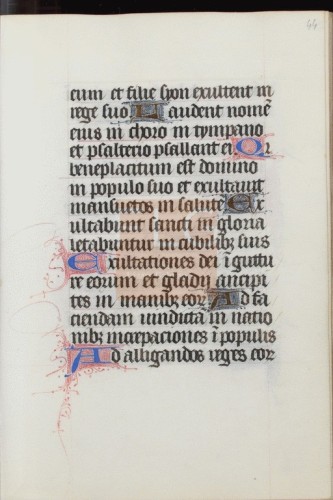 44
eum et filie syon exultent in
rege suo Laudent nomē
eius in choro in tympano
et psalterio psallant ei Qr
beneplacitum est domino
in populo suo et exultauit
mansuetos in salutē Ex
ultabunt sancti in gloria
letabuntur in cubilibꝫ suis
Exultationes dei ī guttu
re eorum et gladij ancipi
tes in manibꝫ eor Ad fa
ciendam uindictā in natio
nibꝫ increpaciones ī populis
Ad alligandos reges eor